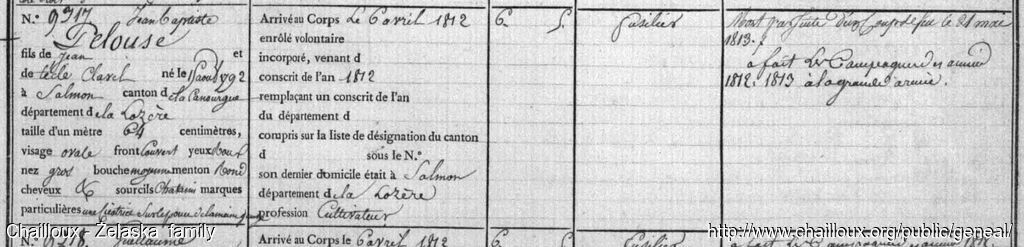 N.º 9317 Jean Baptiste
Pelouse
fils de Jean et
de Cécile Clavel né le 1 Aout 1792
à Salmon canton de la Canourgue
département de la Lozère
taille d'un mètre 64 centimètres,
visage ovale front Couvert yeux Roux
nez gros bouche moyenne menton Rond
cheveux & sourcils Chatains marques
particulières une Cicatrice Sur le pouce de la main
Arrivé au Corps Le 6 avril 1812
enrôlé volontaire
incorporé, venant d
conscrit de l'an 1812
remplaçant un conscrit de l'an
du département d
compris sur la liste de désignation du canton
d sous le N.º
son dernier domicile était à Salmon
département de la Lozère
profession Cultivateur
6. 5.
Fusilier
Mort par suite d'un coup de feu le 21 mai
1813.
a fait les Campagnes des années
1812. 1813 à la grande armée.
N.º 9318. Guillaume
Arrivé au Corps Le 6 avril 1812
6. 5.
Fusilier
a fait les Campagnes
Chailloux - Żelaska family
http://www.chailloux.org/public/geneal/